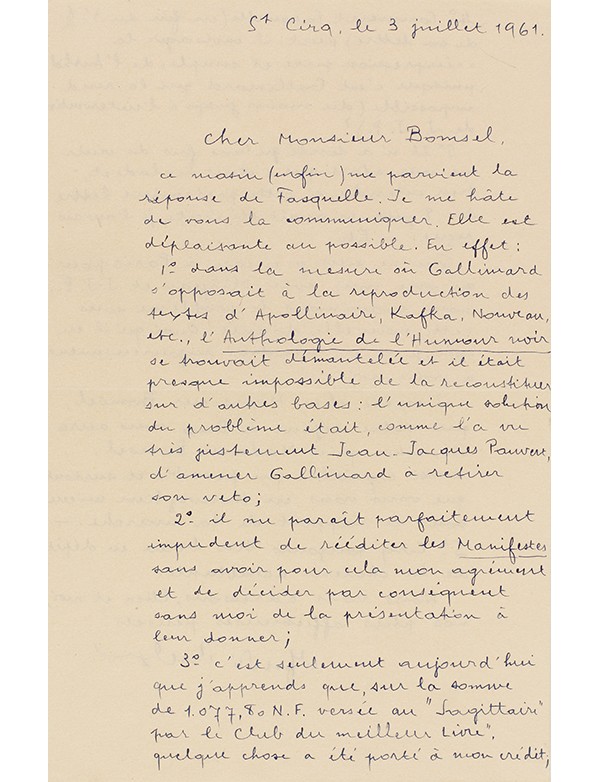 St Cirq, le 3 juillet 1961.
Cher Monsieur Bomsel,
ce matin (enfin) me parvient la
réponse de Fasquelle. Je me hâte
de vous la communiquer. Elle est
déplaisante au possible. En effet :
1º dans la mesure où Gallimard
s'opposait à la reproduction des
textes d'Apollinaire, Kafka, Nouveau,
etc., l'Anthologie de l'Humour noir
se trouvait démantelée et il était
presque impossible de la reconstituer
sur d'autres bases : l'unique solution
du problème était, comme l'a vu
très justement Jean-Jacques Pauvert,
d'amener Gallimard à retirer
son veto ;
2º il me paraît parfaitement
impudent de rééditer les Manifestes
sans avoir pour cela mon agrément
et de décider par conséquent
sans moi de la présentation à
leur donner ;
3º c'est seulement aujourd'hui
que j'apprends que, sur la somme
de 1.077,80 N.F. versée au "Sagittaire"
par le Club du meilleur Livre",
quelque chose a été porté à mon crédit,